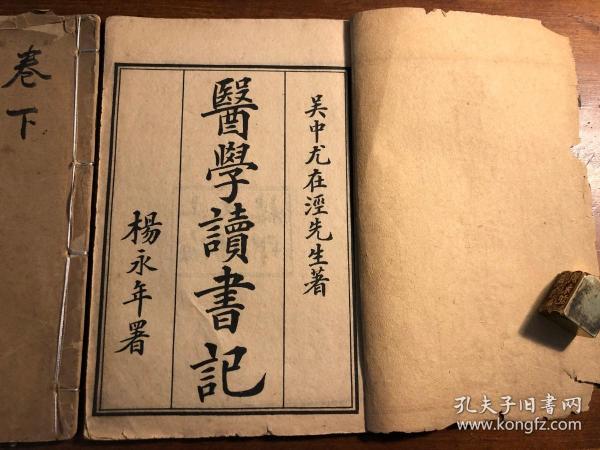 吴中尤在涇先生著
醫學讀書記
楊永年署
卷下
孔夫子旧书网
www.kongfz.com